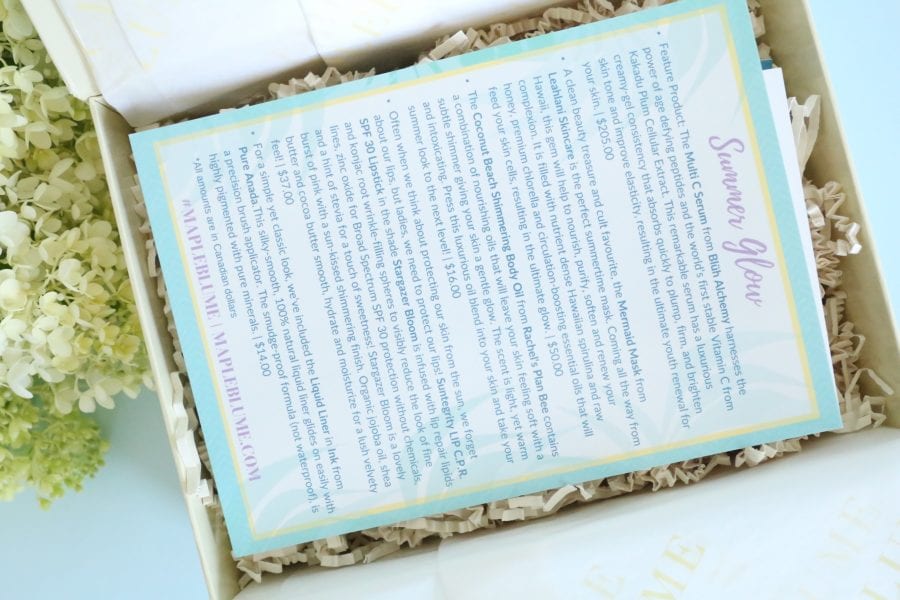 Summer Glow
• Feature Product. The Multi C Serum from Blüh Alchemy harnesses the
power of age defying peptides and the world's first stable Vitamin C from
Kakadu Plum Cellular Extract. This remarkable serum has a luxurious
creamy-gel consistency that absorbs quickly to plump, firm, and brighten
skin tone and improve elasticity, resulting in the ultimate youth renewal for
your skin. | $205.00
• A clean beauty treasure and cult favourite, the Mermaid Mask from
Leahlani Skincare is the perfect summertime mask. Coming all the way from
Hawaii, this gem will help to nourish, purify, soften and renew your
complexion. It is filled with nutrient dense Hawaiian spirulina and raw
honey, premium chlorella and circulation-boosting essential oils that will
feed your skin cells, resulting in the ultimate glow. | $50.00
• The Coconut Beach Shimmering Body Oil from Rachel's Plan Bee contains
a combination of nourishing oils that will leave your skin feeling soft with a
subtle shimmer giving your skin a gentle glow. The scent is light, yet warm
and intoxicating. Press this luxurious oil blend into your skin and take your
summer look to the next level! | $16.00
• Often when we think about protecting our skin from the sun, we forget
about our lips, but ladies, we need to protect our lips! Suntegrity LIP C.P.R.
SPF 30 Lipstick in the shade Stargazer Bloom is infused with lip repair lipids
and konjac root wrinkle-filling spheres to visibly reduce the look of fine
lines, zinc oxide for Broad Spectrum SPF 30 protection without chemicals,
and a hint of stevia for a touch of sweetness! Stargazer bloom is a lovely
burst of pink with a sun-kissed shimmering finish. Organic jojoba oil, shea
butter and cocoa butter smooth, hydrate and moisturize for a lush velvety
feel! | $37.00
• For a simple yet classic look, we've included the Liquid Liner in Ink from
Pure Anada. This silky-smooth, 100% natural liquid liner glides on easily with
a precision brush applicator. The smudge-proof formula (not waterproof), is
highly pigmented with pure minerals. | $14.00
*All amounts are in Canadian dollars
#MAPLEBLUME | MAPLEBLUME.COM